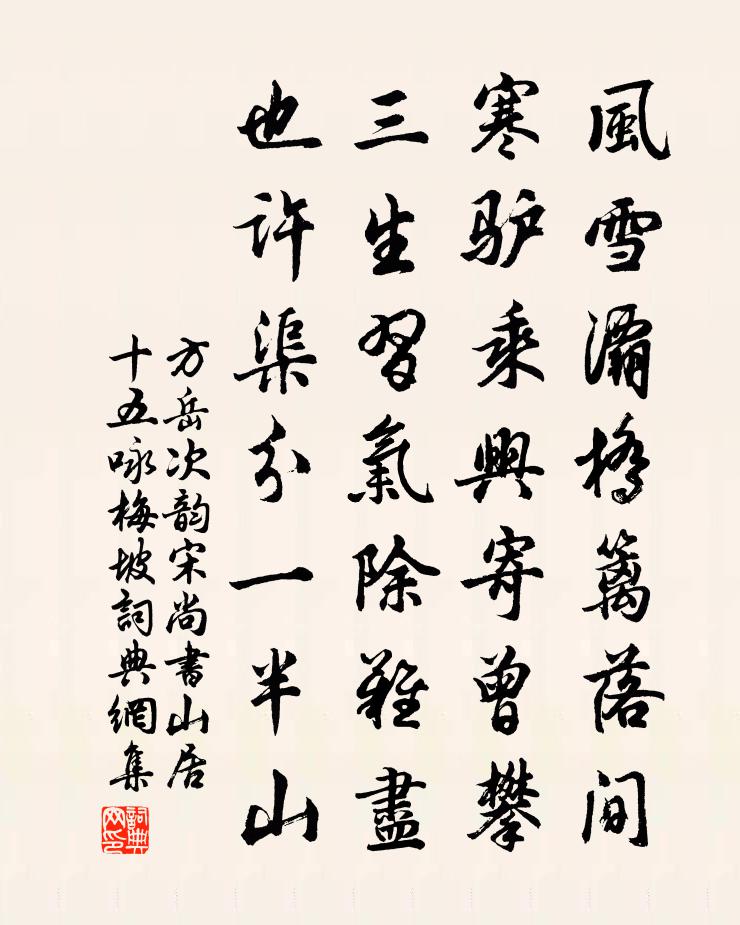 風雪灞橋籬落間
寒驴乘興寄曾攀
三生習氣除難盡
也許渠分一半山
方岳次韵宋尚書山居
十五咏梅坡詞典網集
詞典網印